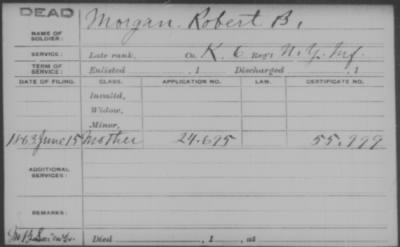 DEAD
Morgan, Robert B.
NAME OF SOLDIER:
SERVICE: Late rank, Co. K, 6 Reg't N.Y. Inf.
TERM OF SERVICE: Enlisted , 1 Discharged , 1
DATE OF FILING. CLASS. APPLICATION NO. LAW. CERTIFICATE NO.
Invalid,
Widow,
Minor,
1863 June 15 Mother 24.695 55.999
ADDITIONAL SERVICES:
REMARKS:
Died , 1 , at